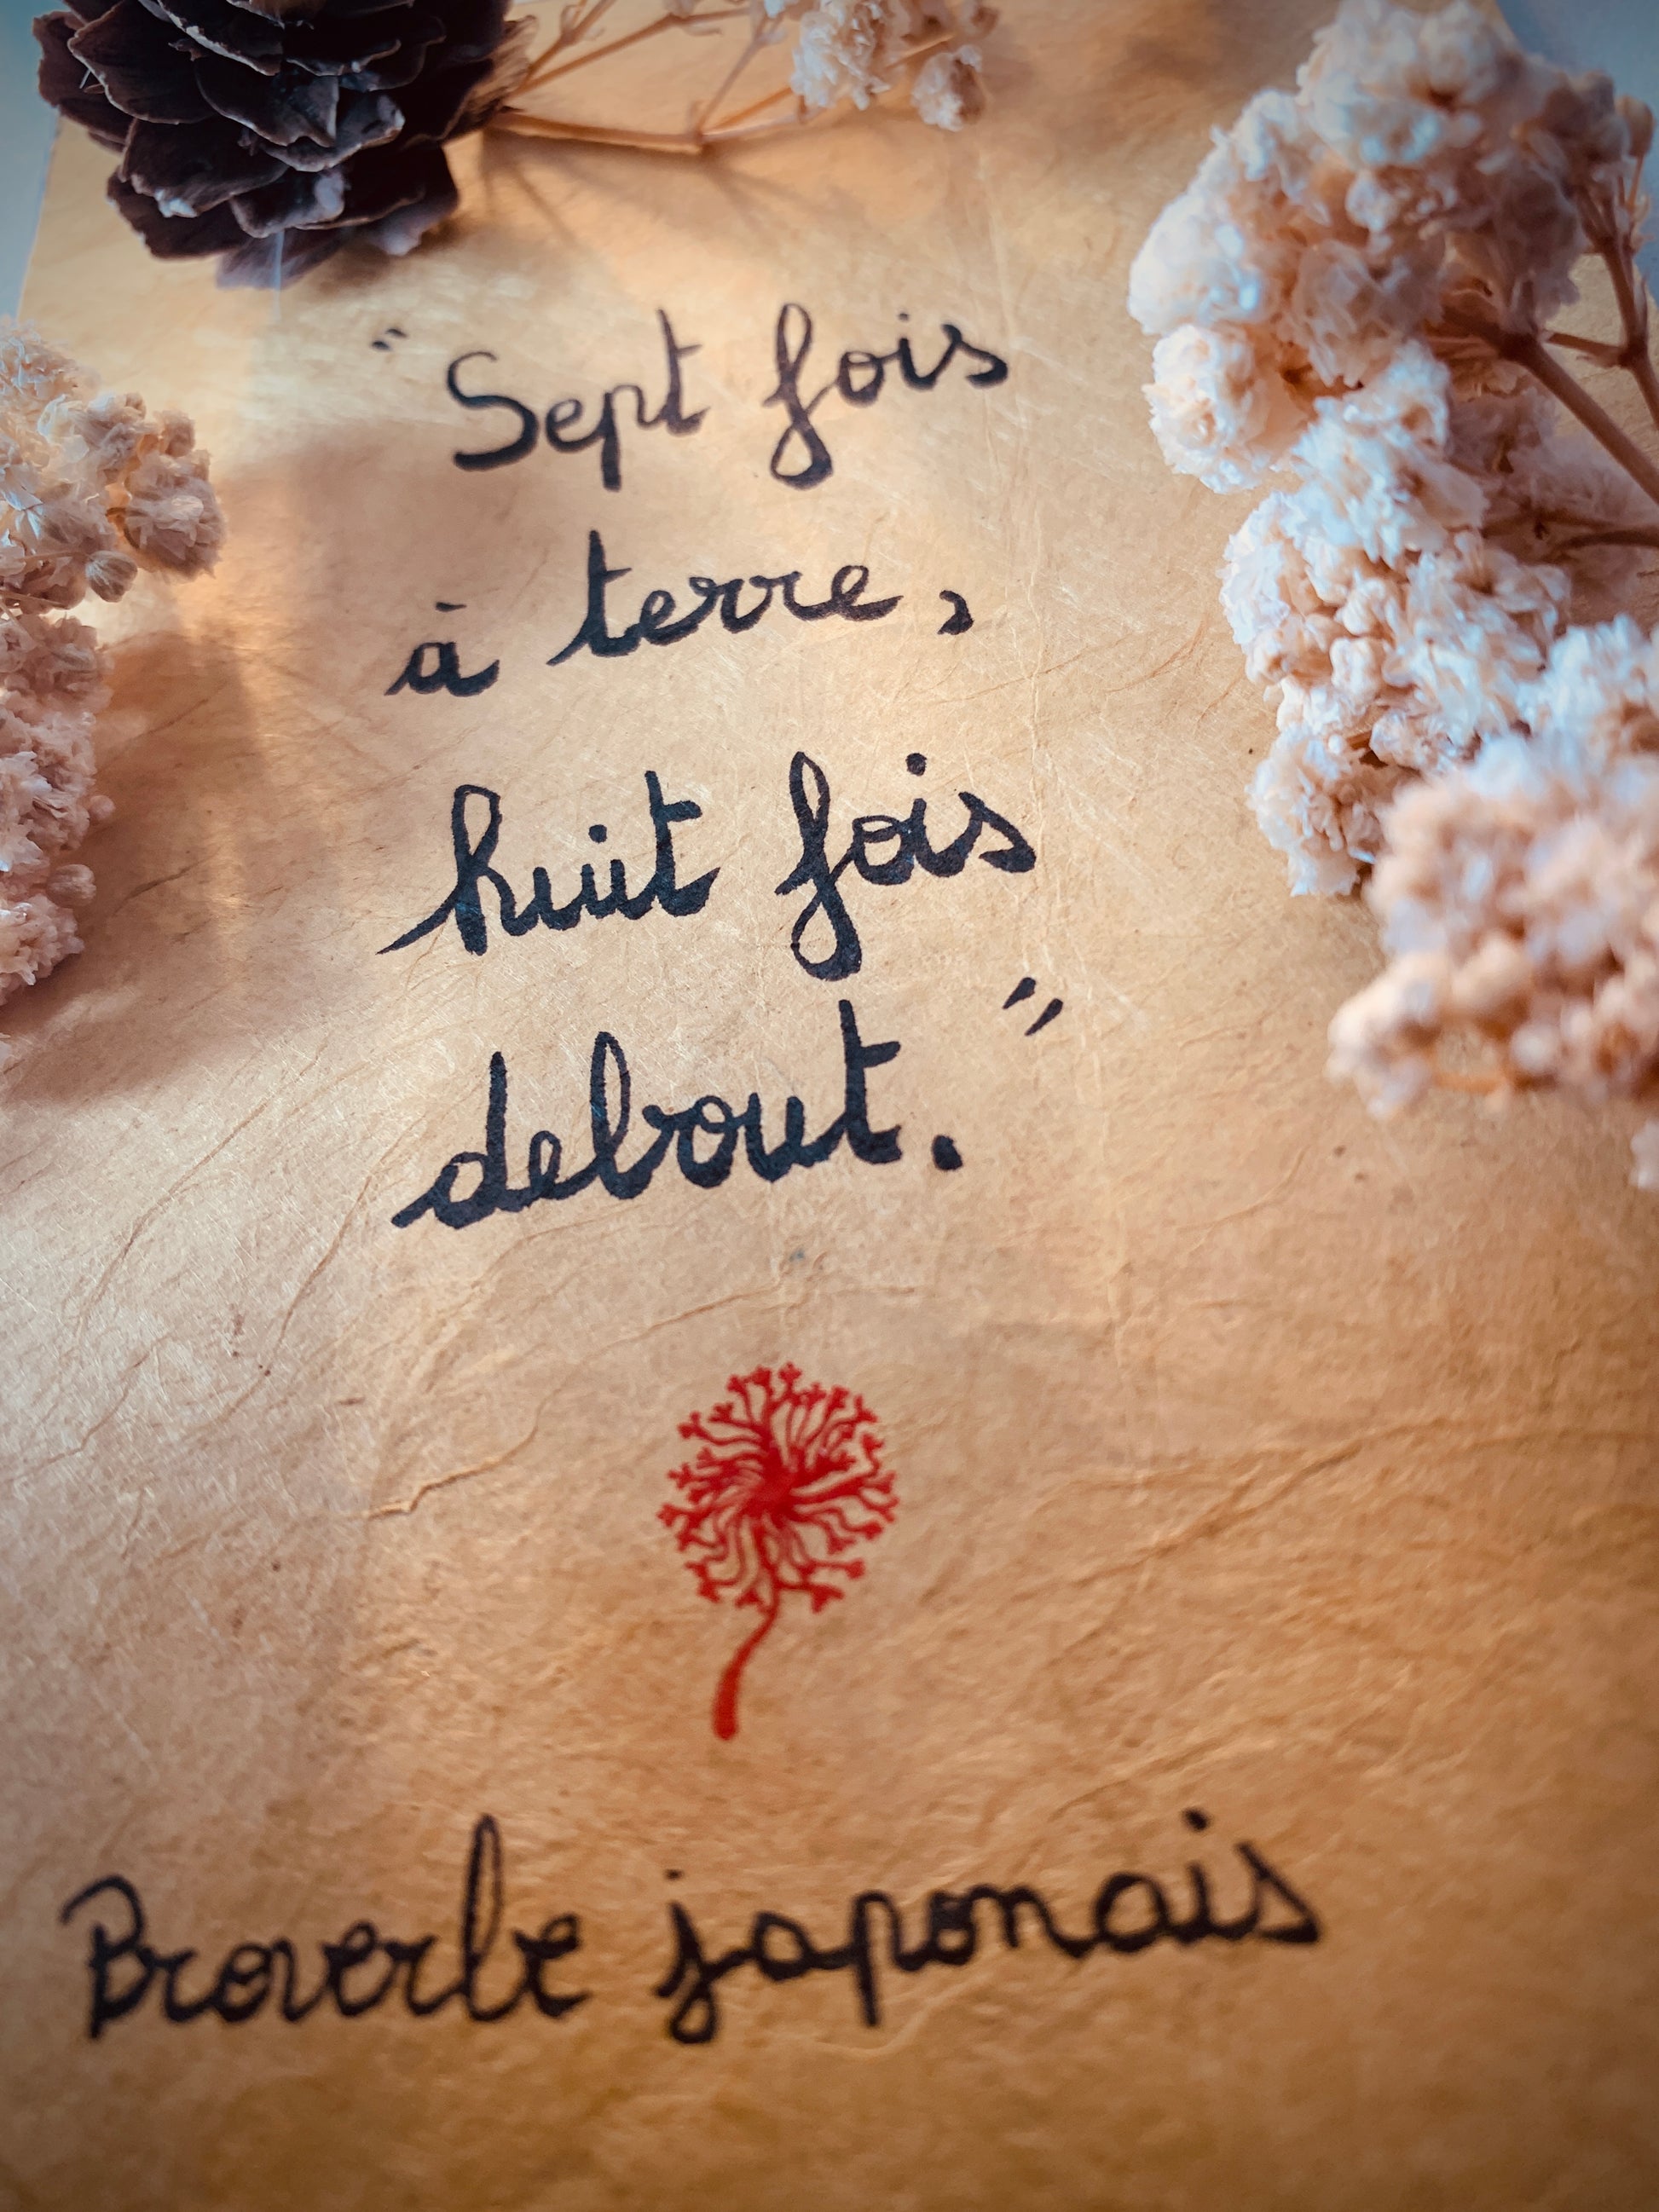 "Sept fois
à terre,
huit fois
debout."
Proverbe japonais